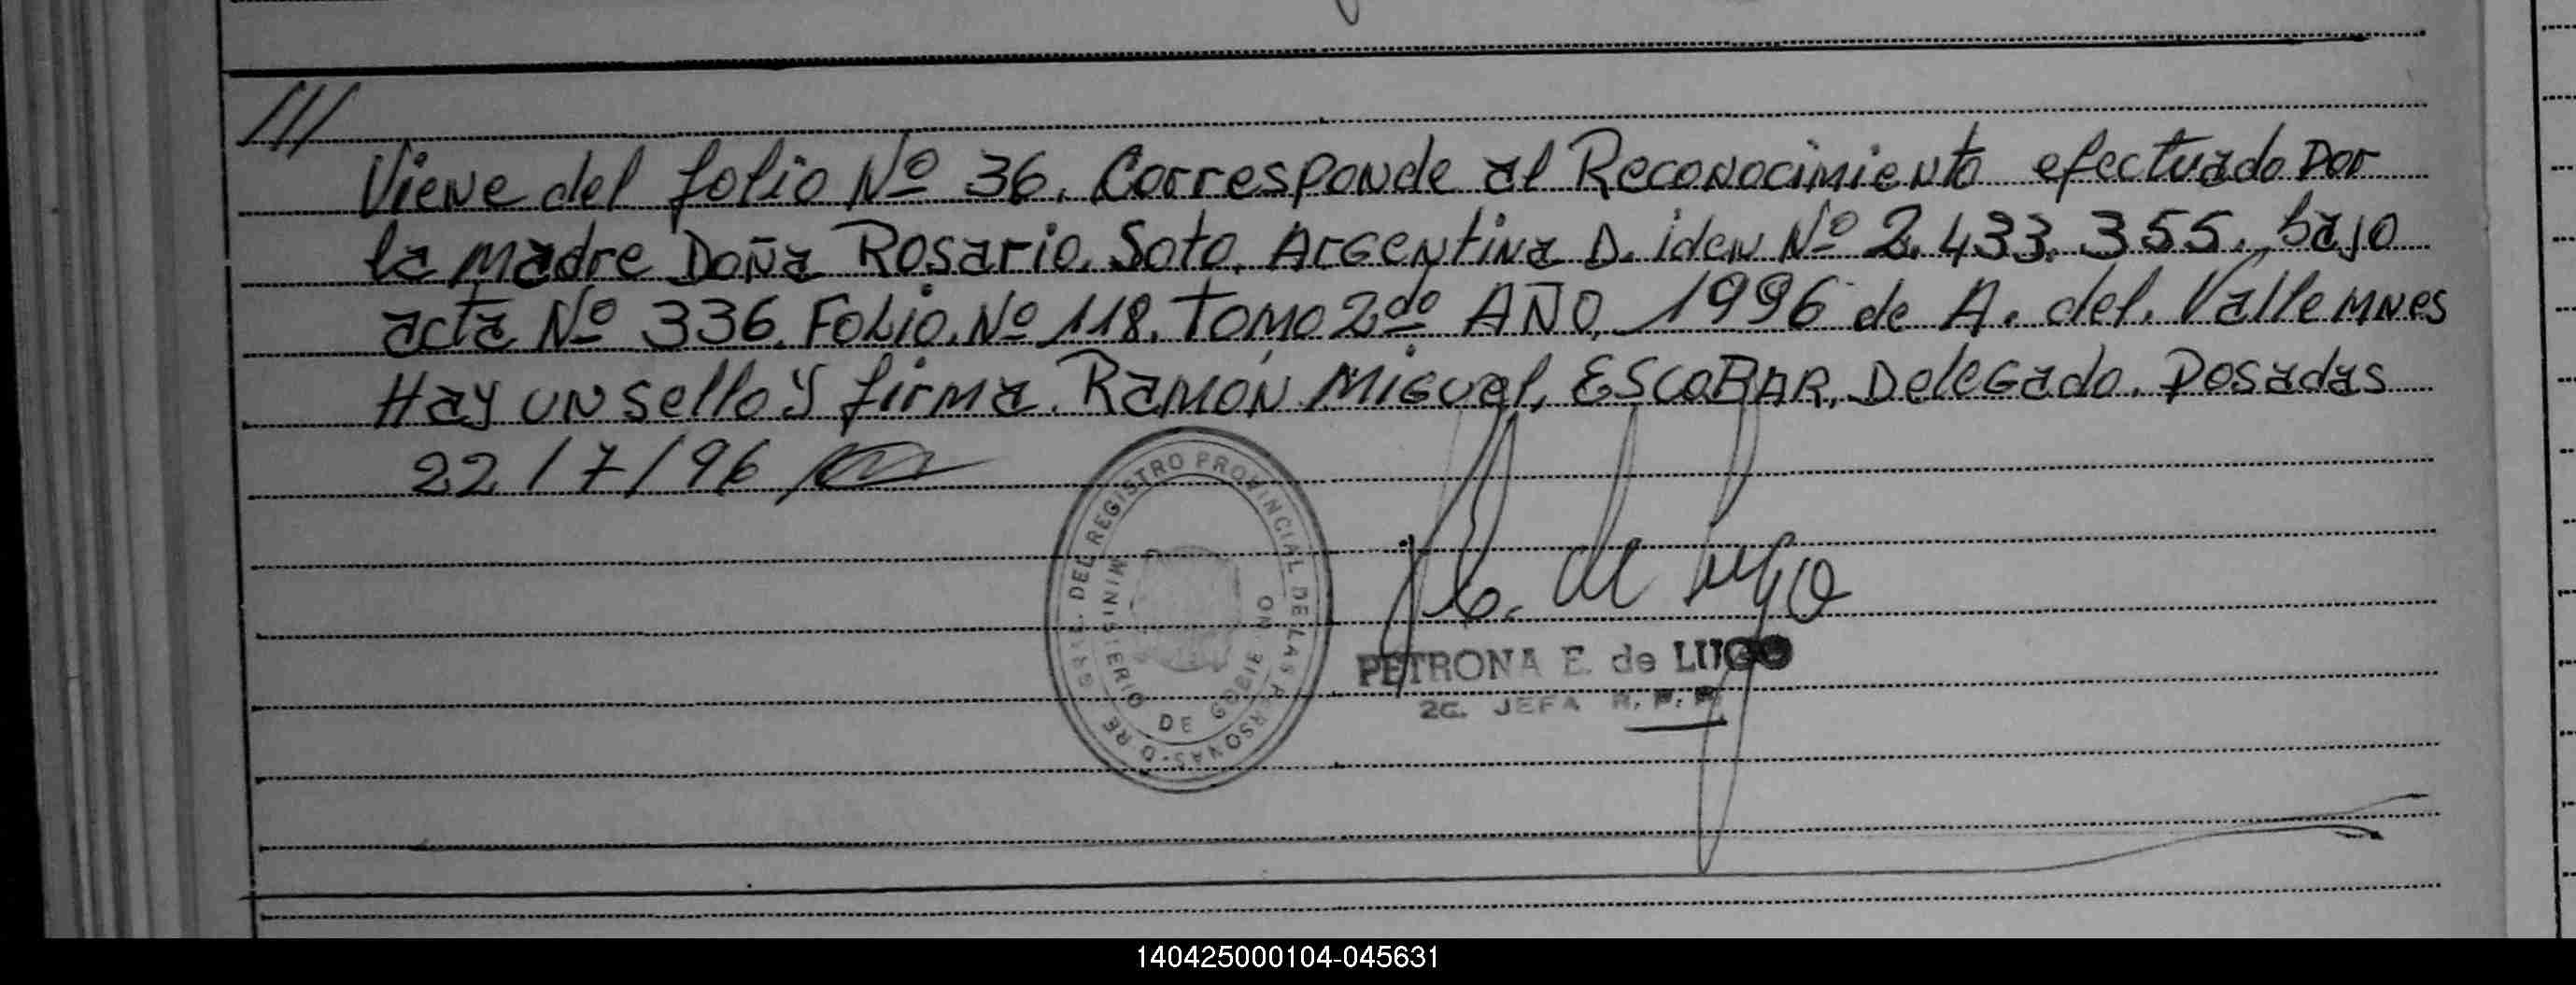 ///
Viene del folio Nº 36. Corresponde al Reconocimiento efectuado por
la madre Doña Rosario. Soto. Argentina D. iden Nº 2.433.355., bajo
acta Nº 336. Folio. Nº 118. Tomo 2do AÑO. 1996 de A. del. Valle MNes
Hay un sello y firma. Ramón Miguel, ESCOBAR, Delegado. Posadas
22/7/96
DEL REGISTRO PROVINCIAL DE LAS PERSONAS
MINISTERIO DE GOBIERNO
de Lugo
PETRONA E. de LUGO
2a. JEFA R. P. P.
140425000104-045631